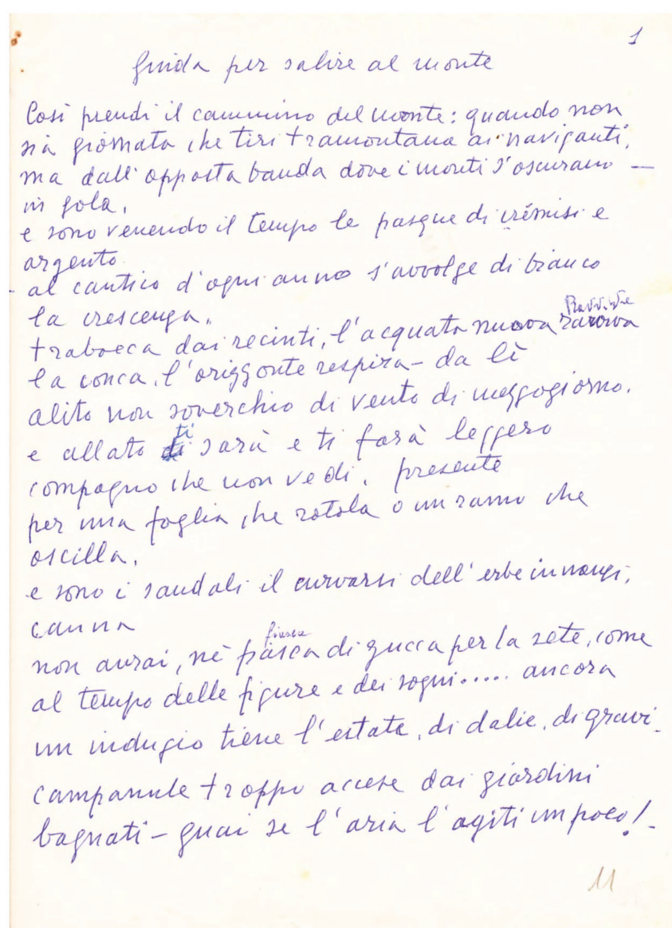 1
Guida per salire al monte
Così prendi il cammino del monte: quando non
sia giornata che tiri tramontana ai naviganti,
ma dall'opposta banda dove i monti s'oscurano —
in gola,
e sono venendo il tempo le pasque di crémisi e
argento
al cantico d'ogni anno s'avvolge di bianco
la crescenza,
trabocca dai recinti, l'acquata nuova
la conca, l'orizzonte respira – da lì
alito non soverchio di vento di mezzogiorno.
e allato ti sarà e ti farà leggero
compagno che non vedi, presente
per una foglia che rotola o un ramo che
oscilla,
e sono i sandali il curvarsi dell'erbe innanzi,
canna
fiasca
non avrai, nè fiasca di zucca per la sete, come
al tempo delle figure e dei sogni..... ancora
un indugio tiene l'estate, di dalie, di gravi
campanule troppo accese dai giardini
bagnati – guai se l'aria l'agiti un poco!
11